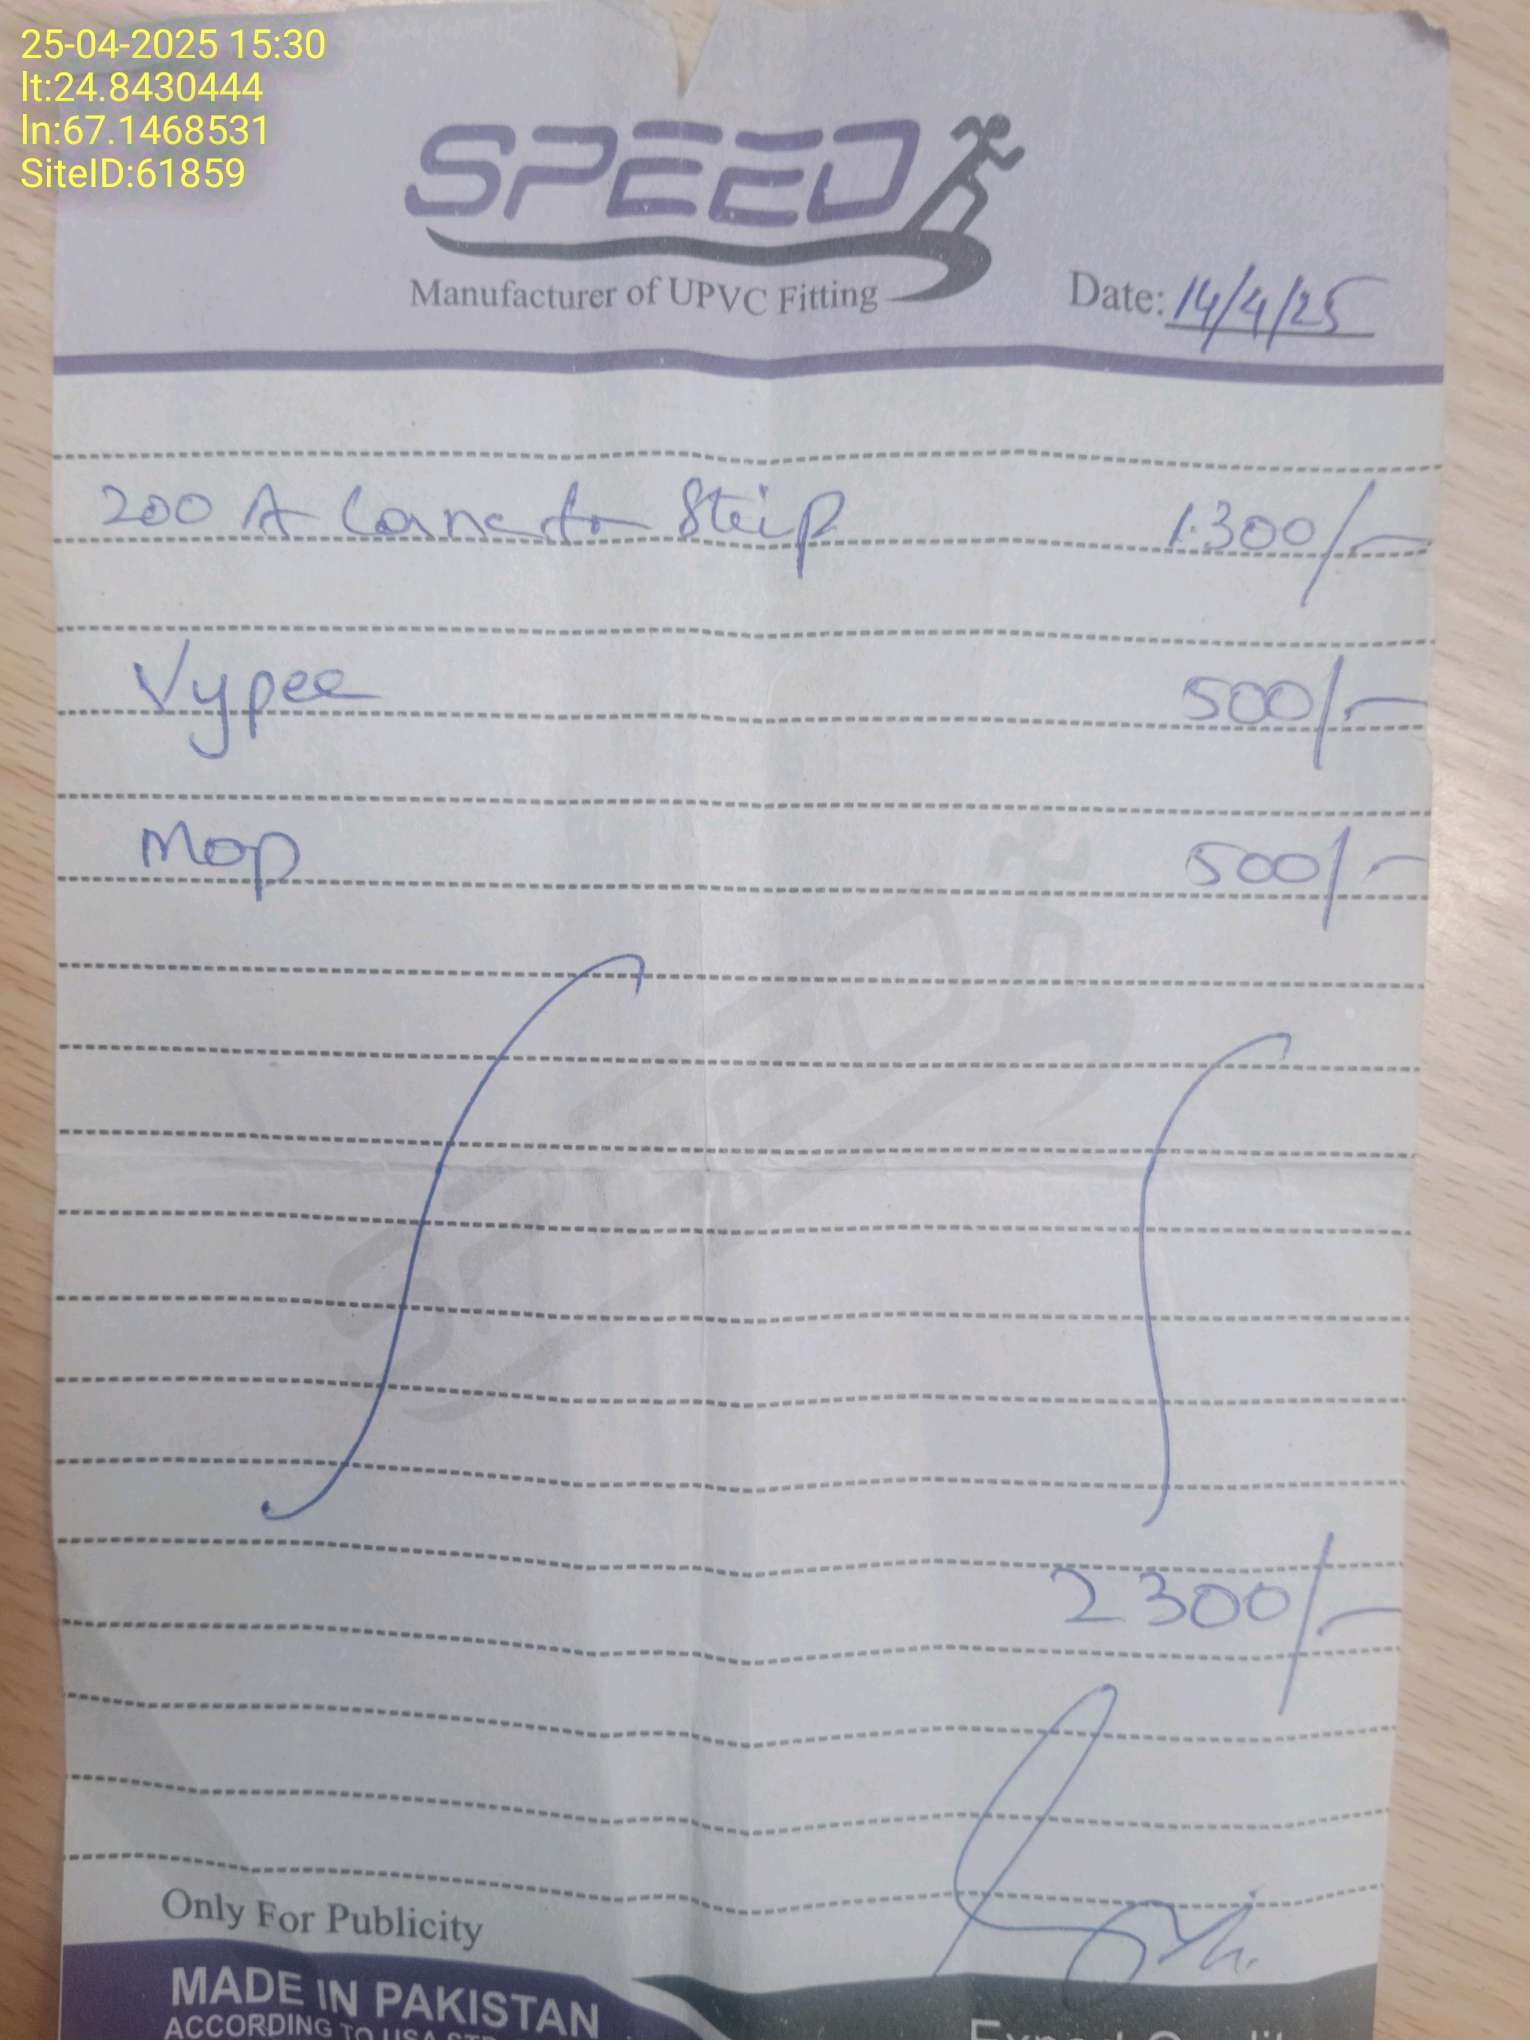 25-04-2025 15:30
lt:24.8430444
ln:67.1468531
SiteID:61859
SPEED
Manufacturer of UPVC Fitting
Date: 14/4/25
200 A Connector Strip 1300/-
Vyper 500/-
Mop 500/-
2300/-
Only For Publicity
MADE IN PAKISTAN
ACCORDING TO USA